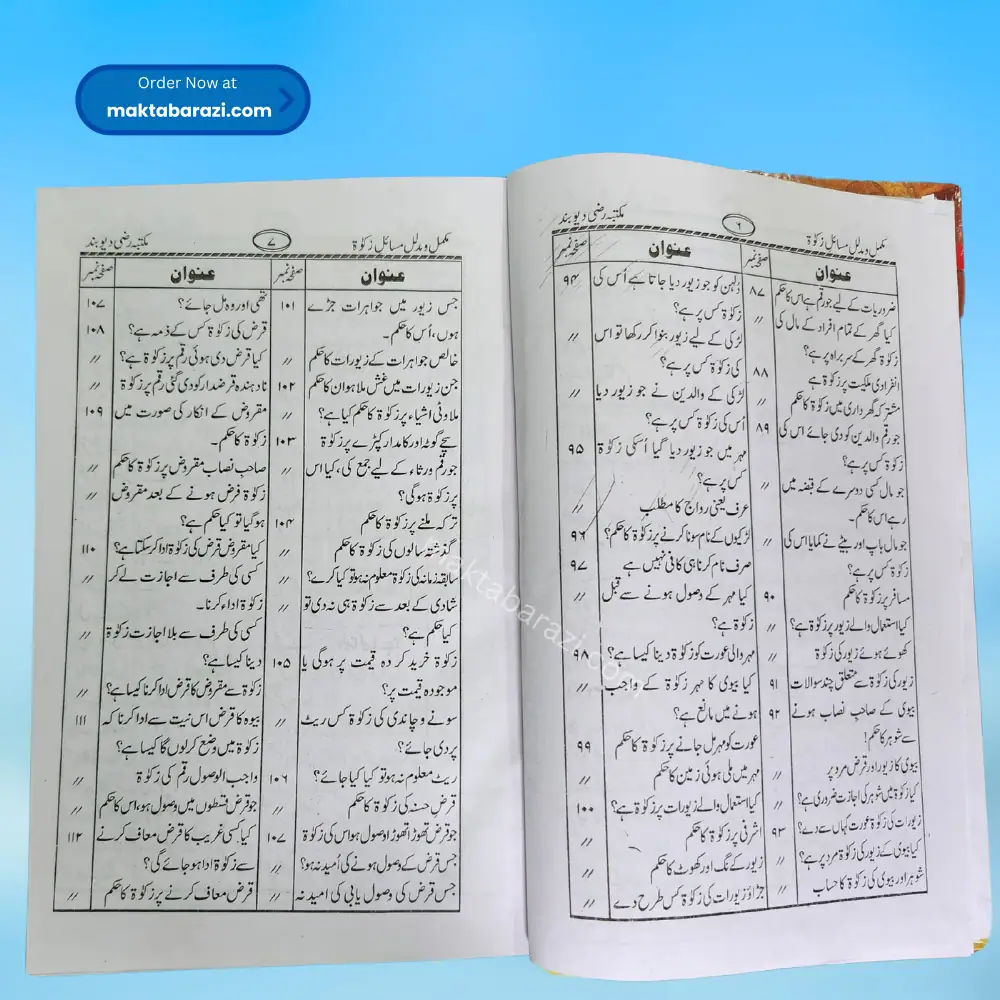 Order Now at
maktabarazi.com
مکمل و مدلل مسائل زکوٰۃ
۶
مکتبہ رضی دیوبند
عنوان
صفحہ نمبر
ضروریات کے لیے جو رقم ہے اس کا حکم ۸۷
کیا گھر کے تمام افراد کے مال کی 〃
زکوٰۃ گھر کے سربراہ پر ہے؟
انفرادی ملکیت پر زکوٰۃ ہے ۸۸
مشترکہ گھرداری میں زکوٰۃ کا حکم 〃
جو رقم والدین کو دی جائے اس کی ۸۹
زکوٰۃ کس پر ہے؟
جو مال کسی دوسرے کے قبضہ میں 〃
رہے اس کا حکم۔
جو مال باپ اور بیٹے نے کمایا اس کی 〃
زکوٰۃ کس پر ہے؟
مسافر پر زکوٰۃ کا حکم ۹۰
کیا استعمال والے زیور پر زکوٰۃ ہے؟ 〃
کھوئے ہوئے زیور کی زکوٰۃ 〃
زیور کی زکوٰۃ سے متعلق چند سوالات ۹۱
بیوی کے صاحبِ نصاب ہونے ۹۲
سے شوہر کا حکم!
بیوی کا زیور اور قرض مرد پر 〃
کیا زکوٰۃ میں شوہر کی اجازت ضروری ہے؟ 〃
زیورات کی زکوٰۃ عورت کہاں سے دے؟ ۹۳
کیا بیوی کے زیور کی زکوٰۃ مرد پر ہے؟ 〃
شوہر اور بیوی کی زکوٰۃ کا حساب 〃
عنوان
صفحہ نمبر
دُلہن کو جو زیور دیا جاتا ہے اُس کی ۹۴
زکوٰۃ کس پر ہے؟
لڑکی کے لیے زیور بنوا کر رکھا تو اس 〃
کی زکوٰۃ کس پر ہے؟
لڑکی کے والدین نے جو زیور دیا 〃
اُس کی زکوٰۃ کس پر ہے؟
مہر میں جو زیور دیا گیا اُسکی زکوٰۃ ۹۵
کس پر ہے؟
عرف یعنی رواج کا مطلب 〃
لڑکیوں کے نام سونا کرنے پر زکوٰۃ کا حکم؟ ۹۶
صرف نام کرنا ہی کافی نہیں ہے ۹۷
کیا مہر کے وصول ہونے سے قبل 〃
زکوٰۃ ہے؟
مہر والی عورت کو زکوٰۃ دینا کیسا ہے؟ ۹۸
کیا بیوی کا مہر زکوٰۃ کے واجب 〃
ہونے میں مانع ہے؟
عورت کو مہر مل جانے پر زکوٰۃ کا حکم ۹۹
مہر میں ملی ہوئی زمین کا حکم 〃
کیا استعمال والے زیورات پر زکوٰۃ ہے؟ ۱۰۰
اشرفی پر زکوٰۃ کا حکم 〃
زیور کے نگ اور کھوٹ کا حکم 〃
جڑاؤ زیورات کی زکوٰۃ کس طرح دے 〃
مکمل و مدلل مسائل زکوٰۃ
۷
مکتبہ رضی دیوبند
عنوان
صفحہ نمبر
جس زیور میں جواہرات جڑے ۱۰۱
ہوں، اُس کا حکم۔
خالص جواہرات کے زیورات کا حکم 〃
جن زیورات میں غش ملا ہو ان کا حکم ۱۰۲
ملاوٹی اشیاء پر زکوٰۃ کا حکم کیا ہے؟ 〃
سچے گوٹہ اور کامدار کپڑے پر زکوٰۃ ۱۰۳
جو رقم ورثاء کے لیے جمع کی، کیا اس 〃
پر زکوٰۃ ہوگی؟
ترکہ ملنے پر زکوٰۃ کا حکم ۱۰۴
گذشتہ سالوں کی زکوٰۃ کا حکم 〃
سابقہ زمانہ کی زکوٰۃ معلوم نہ ہو تو کیا کرے؟ 〃
شادی کے بعد سے زکوٰۃ ہی نہ دی تو 〃
کیا حکم ہے؟
زکوٰۃ خرید کردہ قیمت پر ہوگی یا ۱۰۵
موجودہ قیمت پر؟
سونے و چاندی کی زکوٰۃ کس ریٹ 〃
پر دی جائے؟
ریٹ معلوم نہ ہو تو کیا کیا جائے؟ ۱۰۶
قرضِ حسنہ کی زکوٰۃ کا حکم 〃
جو قرض تھوڑا تھوڑا وصول ہو اس کی زکوٰۃ ۱۰۷
جس قرض کے وصول ہونے کی اُمید نہ ہو؟ 〃
جس قرض کی وصول یابی کی امید نہ 〃
عنوان
صفحہ نمبر
تھی اور وہ مل جائے؟ ۱۰۷
قرض کی زکوٰۃ کس کے ذمہ ہے؟ ۱۰۸
کیا قرض دی ہوئی رقم پر زکوٰۃ ہے؟ 〃
نادہندہ قرضدار کو دی گئی رقم پر زکوٰۃ 〃
مقروض کے انکار کی صورت میں ۱۰۹
زکوٰۃ کا حکم۔
صاحبِ نصاب مقروض پر زکوٰۃ کا حکم 〃
زکوٰۃ فرض ہونے کے بعد مقروض 〃
ہو گیا تو کیا حکم ہے؟
کیا مقروض قرض کی زکوٰۃ ادا کر سکتا ہے؟ ۱۱۰
کسی کی طرف سے اجازت لے کر 〃
زکوٰۃ اداء کرنا۔
کسی کی طرف سے بلا اجازت زکوٰۃ 〃
دینا کیسا ہے؟
زکوٰۃ سے مقروض کا قرض ادا کرنا کیسا ہے؟ 〃
بیوہ کا قرض اس نیت سے ادا کرنا کہ ۱۱۱
زکوٰۃ میں وضع کر لوں گا کیسا ہے؟
واجب الوصول رقم کی زکوٰۃ 〃
جو قرض قسطوں میں وصول ہو، اس کا حکم 〃
کیا کسی غریب کا قرض معاف کرنے ۱۱۲
سے زکوٰۃ ادا ہو جائے گی؟
قرض معاف کرنے پر زکوٰۃ کا حکم 〃
maktabarazi.com